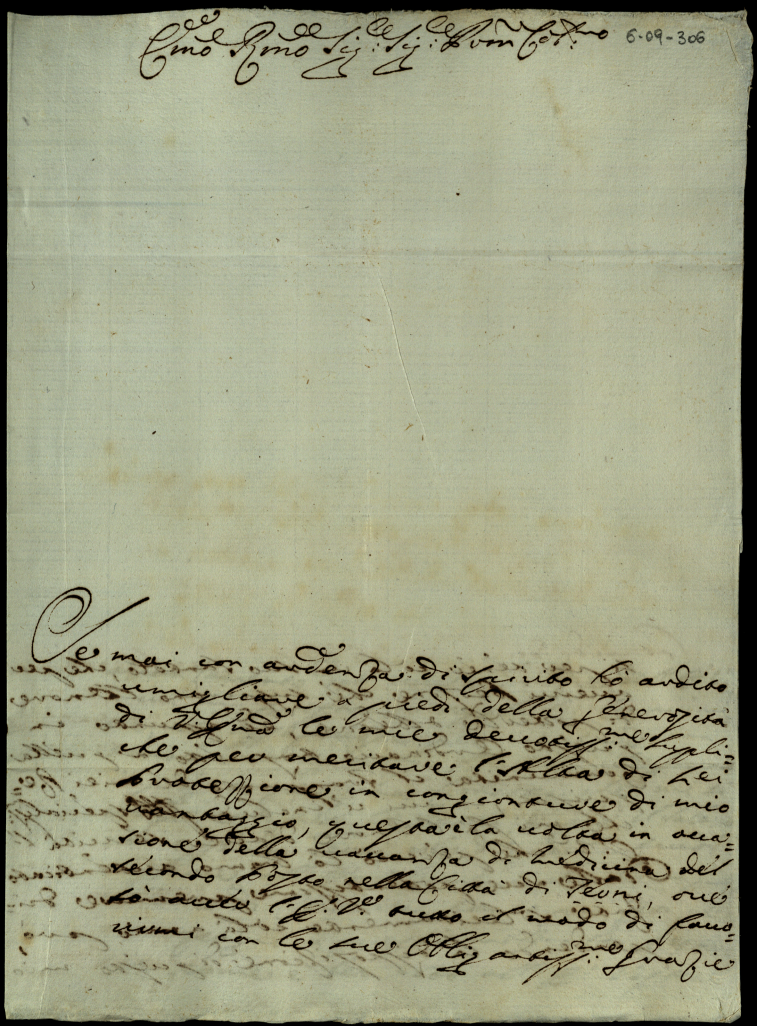 Em̃o Rmõ Sig:re Sig:re Pron Col:mo 6-09-306
Se mai con ardenza di spirito hò ardito
umigliare a' piedi della Generosità
di V. Emã le mie devotiss:me suppli=
che per meritare l'Alta di Lei
Protezzione in congionture di mio
vantaggio, questa è la volta in occa=
sione della vacanza di Medicina del
secondo posto nella Città di Terni, ove
l'E. V. tutto il modo di favo=
rirmi con le sue Obligantiss:me Grazie